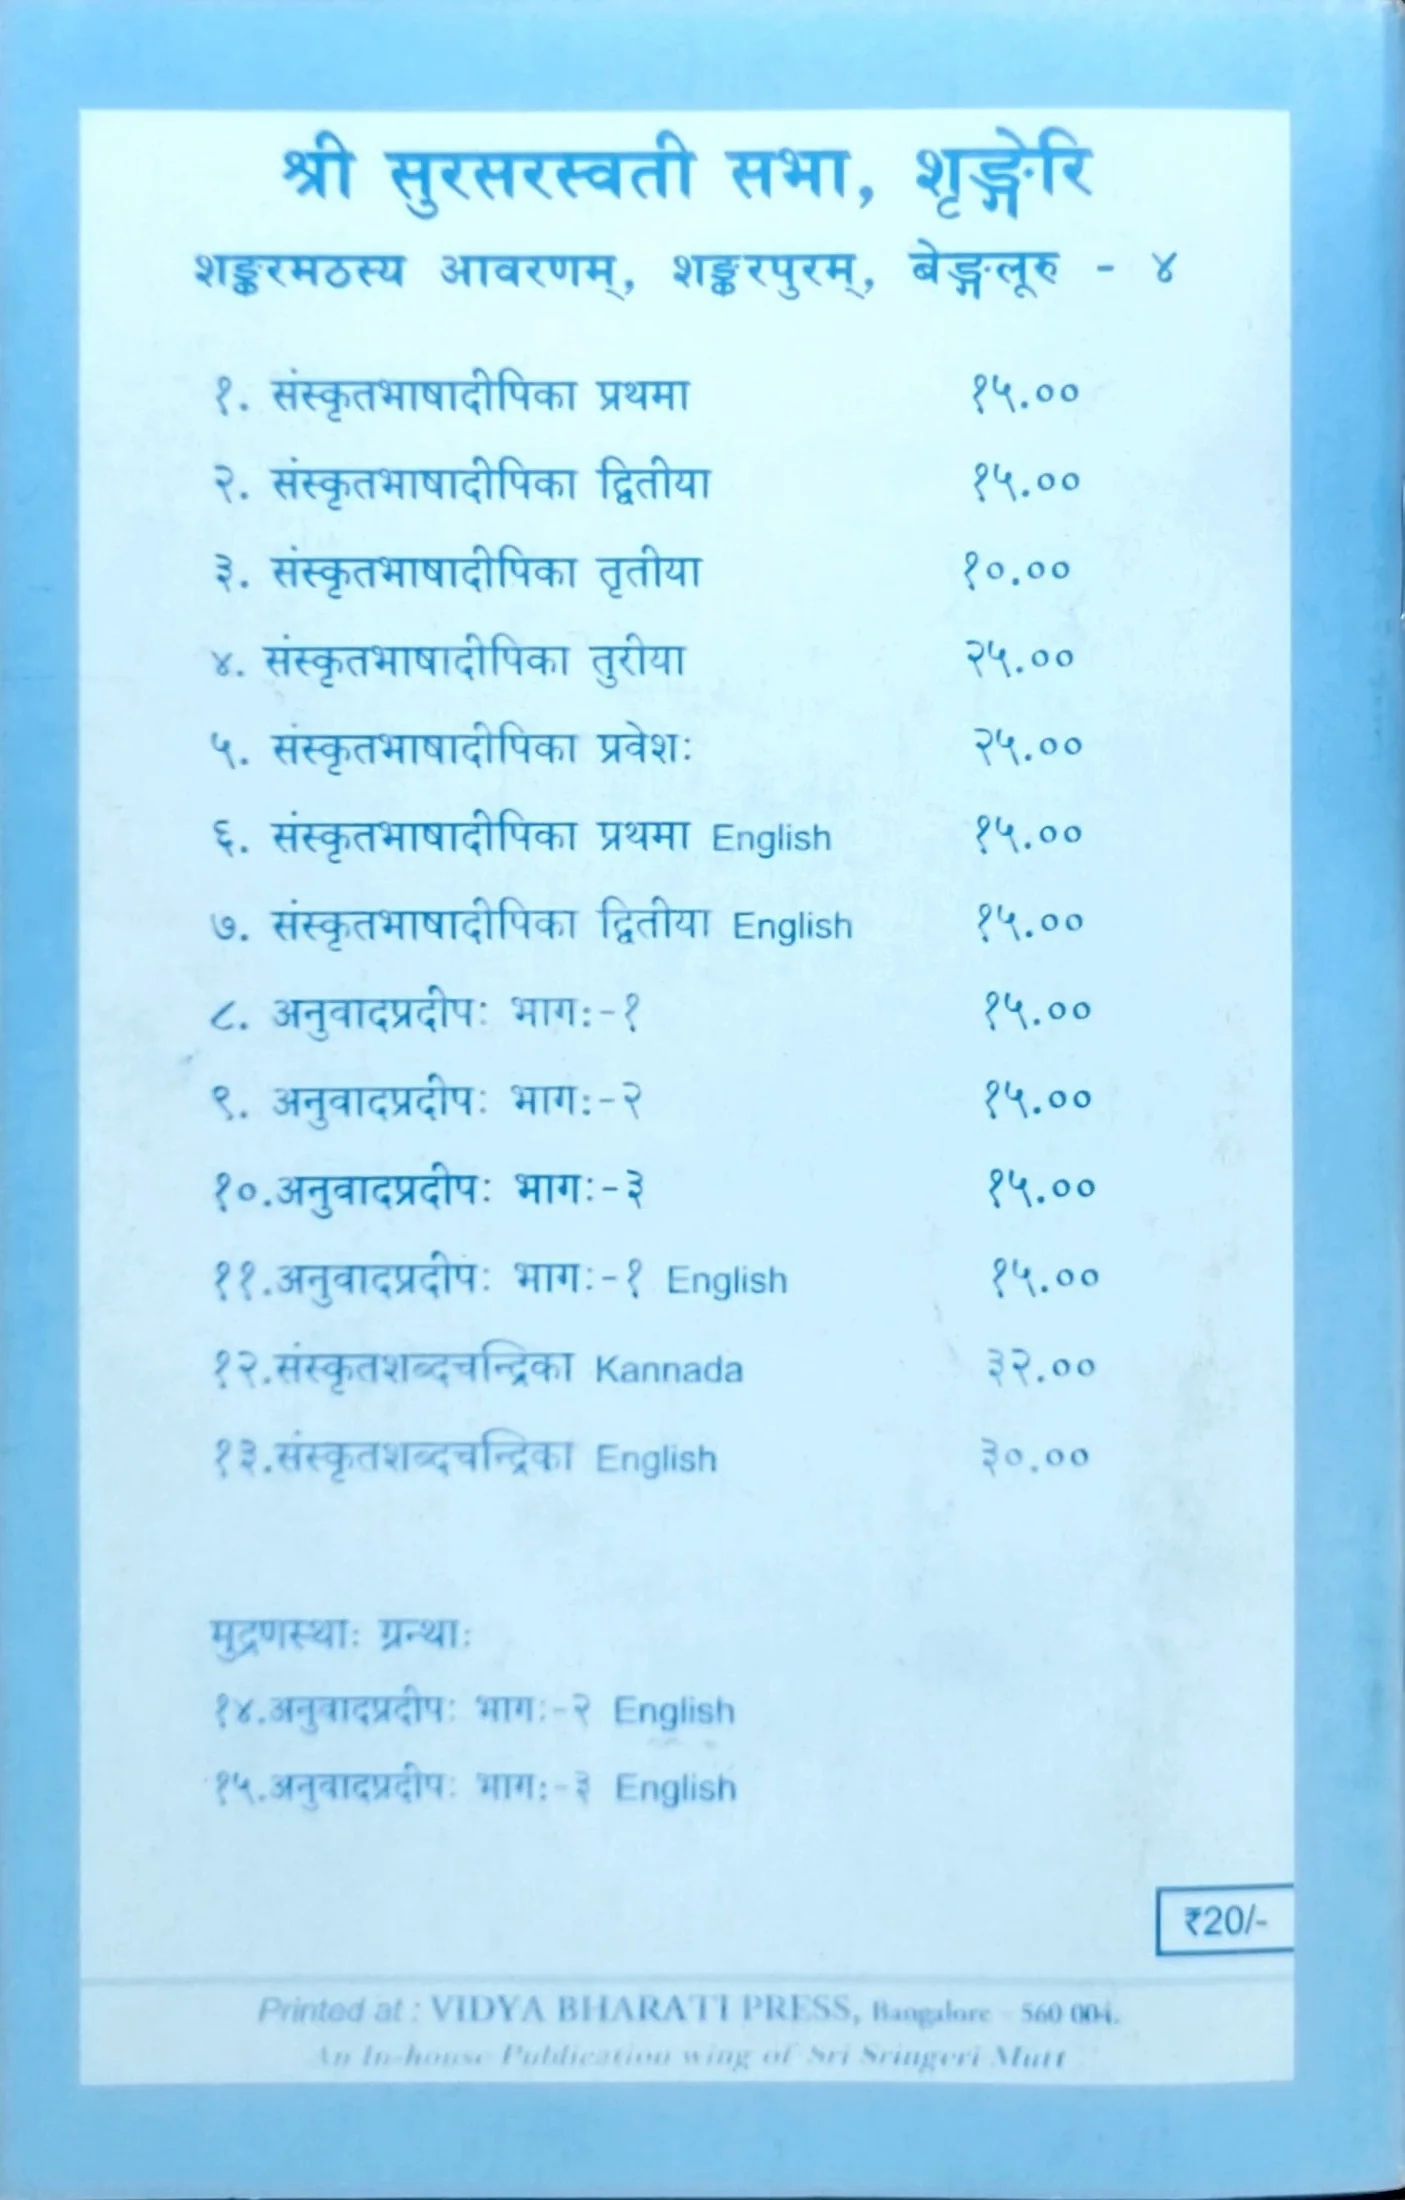 श्री सुरसरस्वती सभा, शृङ्गेरि
शङ्करमठस्य आवरणम्, शङ्करपुरम्, बेङ्गलूरु - ४
१. संस्कृतभाषादीपिका प्रथमा १५.००
२. संस्कृतभाषादीपिका द्वितीया १५.००
३. संस्कृतभाषादीपिका तृतीया १०.००
४. संस्कृतभाषादीपिका तुरीया २५.००
५. संस्कृतभाषादीपिका प्रवेशः २५.००
६. संस्कृतभाषादीपिका प्रथमा English १५.००
७. संस्कृतभाषादीपिका द्वितीया English १५.००
८. अनुवादप्रदीपः भागः-१ १५.००
९. अनुवादप्रदीपः भागः-२ १५.००
१०.अनुवादप्रदीपः भागः-३ १५.००
११.अनुवादप्रदीपः भागः-१ English १५.००
१२.संस्कृतशब्दचन्द्रिका Kannada ३२.००
१३.संस्कृतशब्दचन्द्रिका English ३०.००
मुद्रणस्थाः ग्रन्थाः
१४.अनुवादप्रदीपः भागः-२ English
१५.अनुवादप्रदीपः भागः-३ English
₹20/-
Printed at : VIDYA BHARATI PRESS, Bangalore - 560 004.
An In-house Publication wing of Sri Sringeri Mutt